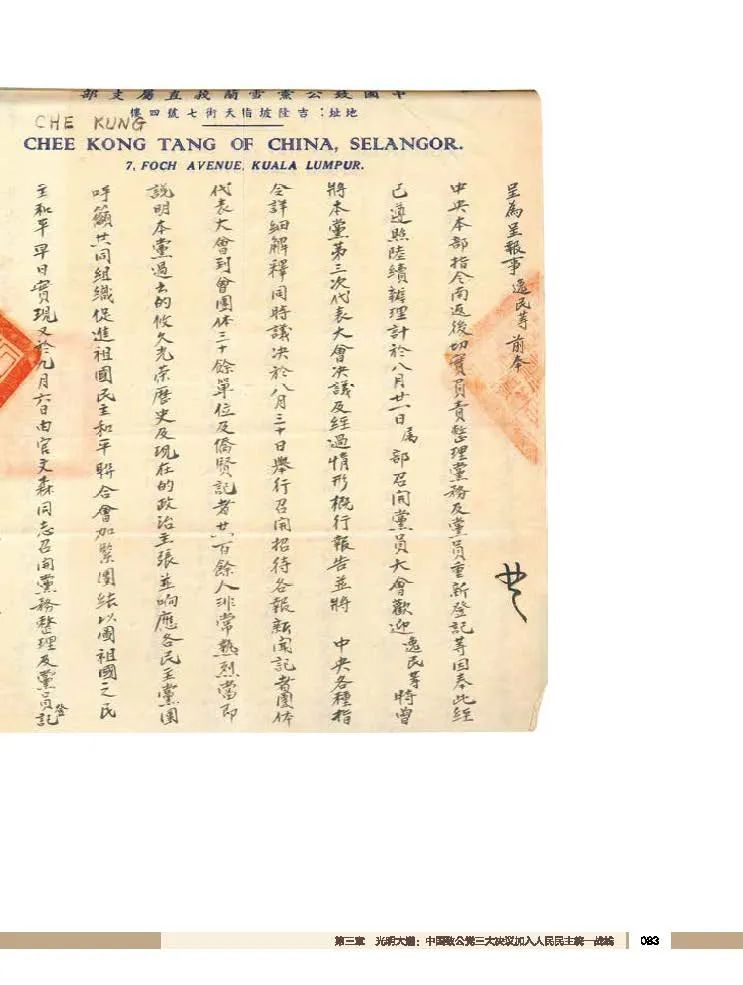 中國致公黨雪蘭莪直屬支部
地址：吉隆坡指天街七號四樓
CHE KUNG
CHEE KONG TANG OF CHINA, SELANGOR.
7, FOCH AVENUE, KUALA LUMPUR.
呈為呈報事逸民等前奉
中央本部指令南返後切實負責整理黨務及黨員重新登記等因奉此經
已遵照陸續辦理計於八月廿一日屬部召開黨員大會歡迎逸民等時曾
將本黨第三次代表大會決議及經過情形概行報告並將 中央各種指
令詳細解釋同時議決於八月三十日舉行召開招待各報新聞記者團体
代表大會到會團体三十餘單位及僑賢記者廿六百餘人非常熱烈當即
說明本黨過去的攸久光荣歷史及現在的政治主張並响應各民主黨團
呼籲共同組織促進祖國民主和平聨合會加緊團結以圖祖國之民
主和平早日實現又於九月六日由官文森同志召開黨務整理及黨員登記
第三章 光明大道：中国致公党三大决议加入人民民主统一战线
083